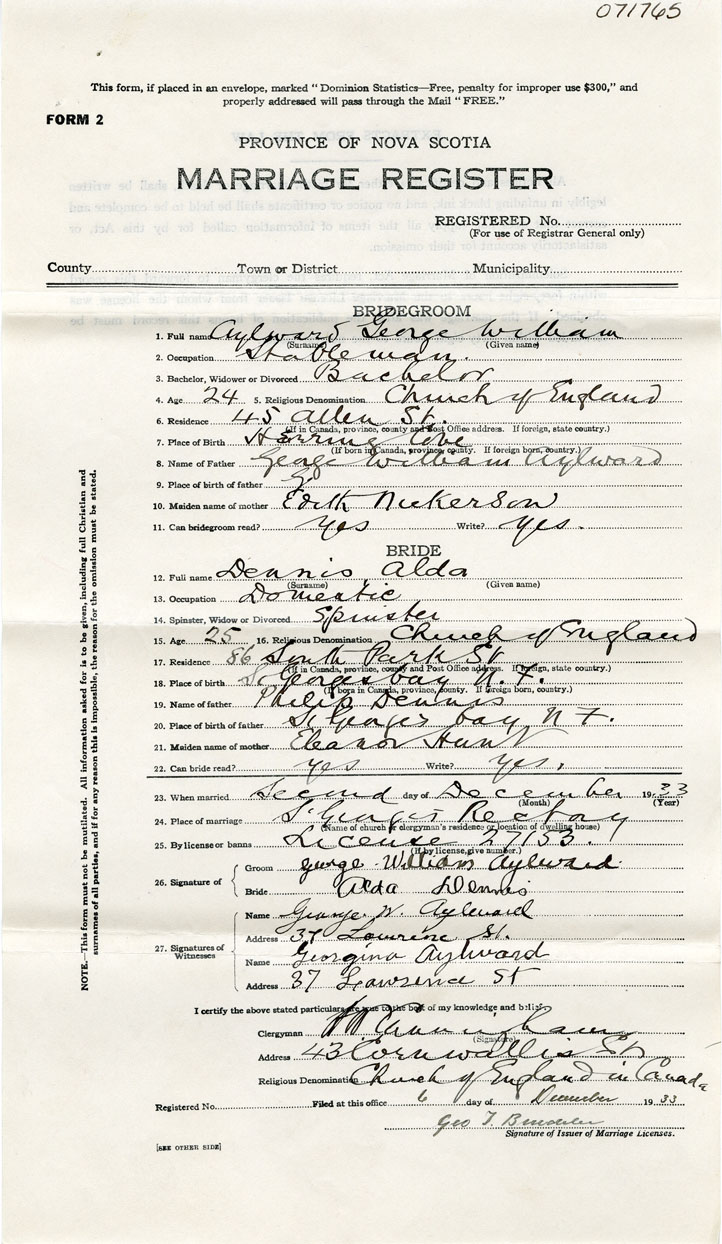 071765
This form, if placed in an envelope, marked "Dominion Statistics—Free, penalty for improper use $300," and
properly addressed will pass through the Mail "FREE."
FORM 2
PROVINCE OF NOVA SCOTIA
MARRIAGE REGISTER
REGISTERED No.
(For use of Registrar General only)
County Town or District Municipality
BRIDEGROOM
1. Full name Aylward George William
(Surname) (Given name)
2. Occupation Stableman.
3. Bachelor, Widower or Divorced Bachelor
4. Age 24 5. Religious Denomination Church of England
6. Residence 45 Allen St.
(If in Canada, province, county and Post Office address. If foreign, state country.)
7. Place of Birth Herring Cove
(If born in Canada, province, county. If foreign born, country.)
8. Name of Father George William Aylward
9. Place of birth of father
10. Maiden name of mother Edith Nickerson
11. Can bridegroom read? Yes Write? Yes.
BRIDE
12. Full name Dennis Alda
(Surname) (Given name)
13. Occupation Domestic
14. Spinster, Widow or Divorced Spinster
15. Age 25 16. Religious Denomination Church of England
17. Residence 86 South Park St.
(If in Canada, province, county and Post Office address. If foreign, state country.)
18. Place of birth St Georges bay N.F.
(If born in Canada, province, county. If foreign born, country.)
19. Name of father Philip Dennis
20. Place of birth of father St Georges bay N F.
21. Maiden name of mother Eleanor Hunt
22. Can bride read? yes Write? Yes.
23. When married Second day of December 1933
(Month) (Year)
24. Place of marriage St Georges Rectory
(Name of church if clergyman's residence or location of dwelling house)
25. By license or banns License 27153.
(If by license, give number.)
26. Signature of Groom George William Aylward
Bride Alda Dennis
27. Signatures of Witnesses
Name George W. Aylward
Address 37 Lawrence St.
Name Georgina Aylward
Address 37 Lawrence St
I certify the above stated particulars are true to the best of my knowledge and belief.
Clergyman Cunningham
(Signature)
Address 43 Cornwallis St.
Religious Denomination Church of England in Canada
Registered No. Filed at this office 6 day of December 1933
Geo T.
Signature of Issuer of Marriage Licenses.
[SEE OTHER SIDE]
NOTE.—This form must not be mutilated. All information asked for is to be given, including full Christian and
surnames of all parties, and if for any reason this is impossible, the reason for the omission must be stated.